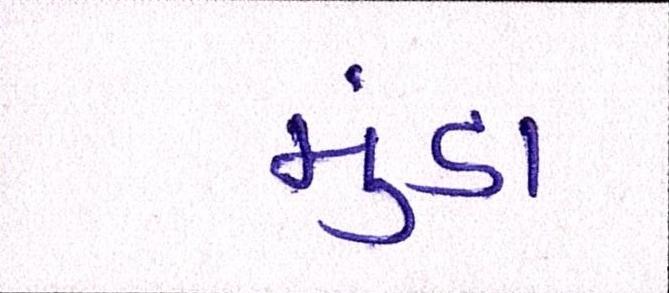 મુંડા